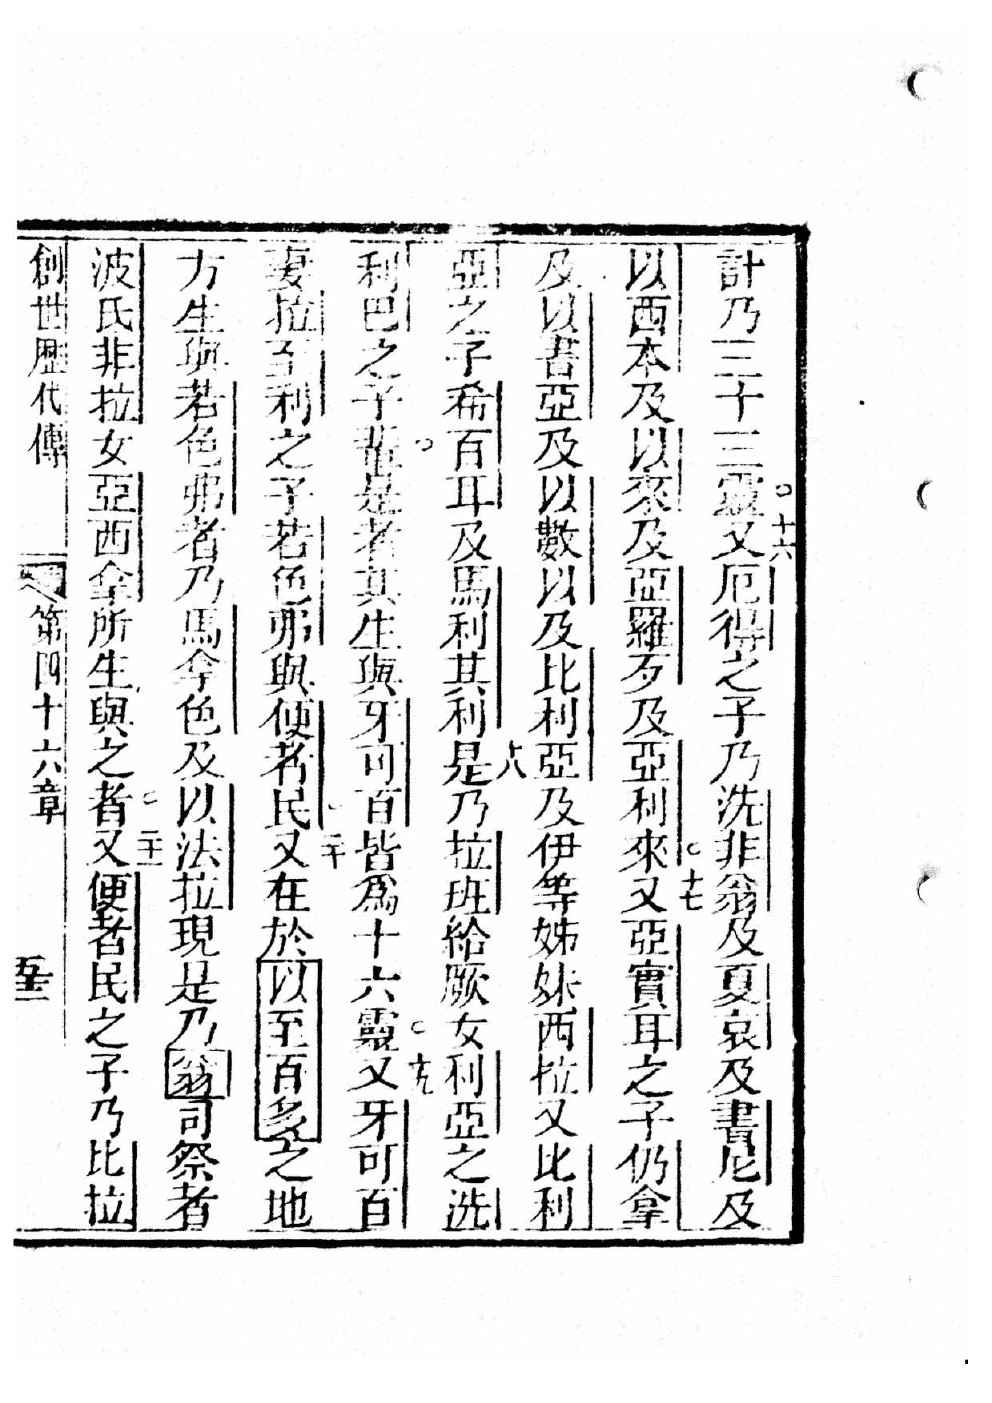 計乃三十三靈○十六又厄得之子乃洗非翁及夏哀及書尼及
以西本及以來及亞羅歹及亞利來○十七又亞實耳之子仍拿
及以書亞及以數以及比利亞及伊等姊妹西拉又比利
亞之子希百耳及馬利其利十八是乃拉班給厥女利亞之洗
利巴之子輩○是者其生與牙可百皆爲十六靈○十九又牙可百
妻拉至利之子若色弗與便者民○二十又在於以至百多之地
方生與若色弗者乃馬拿色及以法拉現是乃翁司祭者
波氏非拉女亞西拿所生與之者○二十一又便者民之子乃比拉
創世歷代傳 第四十六章 五十三